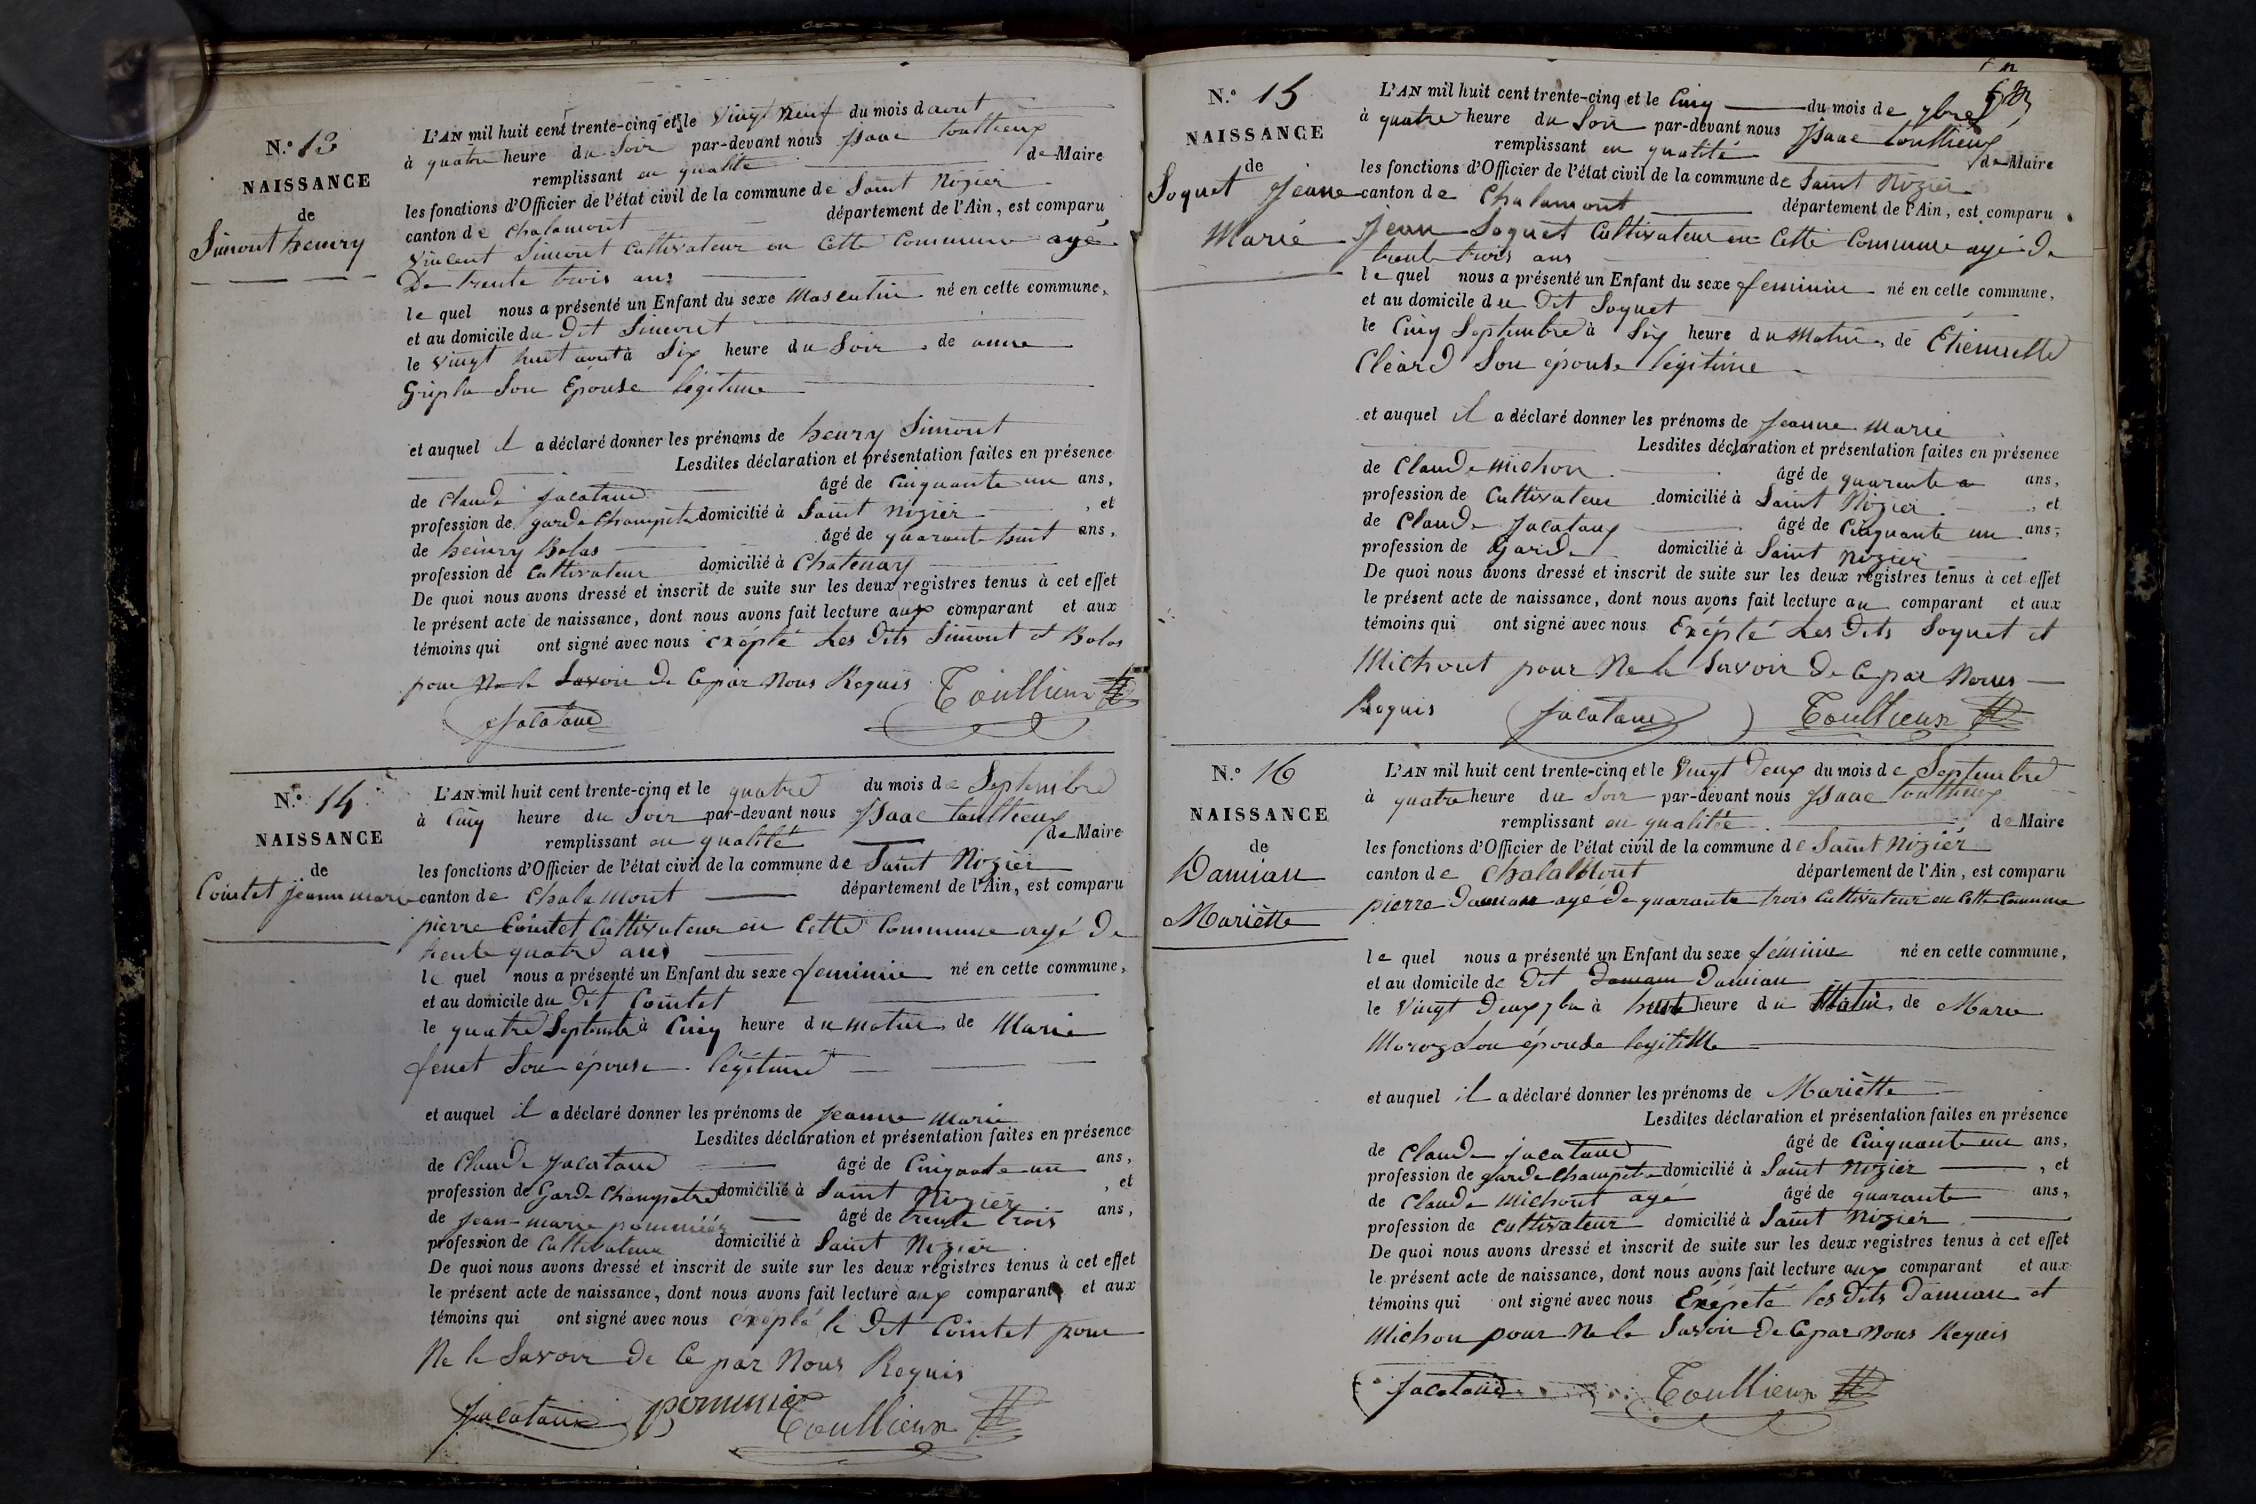 N.° 13
NAISSANCE
de
Simont henry
L'AN mil huit cent trente-cinq et le vingt neuf du mois d'aout
à quatre heure du Soir par-devant nous Isaac toullieux
remplissant en qualité de Maire
les fonctions d'Officier de l'état civil de la commune de Saint Nizier
canton de Chalamont département de l'Ain, est comparu
Vincent Simont Cultivateur en Cette Commune agé
De trente trois ans
le quel nous a présenté un Enfant du sexe Masculin né en cette commune,
et au domicile du Dit Simont
le vingt huit aout à Six heure du Soir, de anne
Gripla Son Epouse légitime
et auquel il a déclaré donner les prénoms de henry Simont
Lesdites déclaration et présentation faites en présence
de Claude Jacataud âgé de Cinquante un ans,
profession de garde Champêtre domicilié à Saint Nizier, et
de heinry Bolas âgé de quarante huit ans,
profession de Cultivateur domicilié à Chatenay
De quoi nous avons dressé et inscrit de suite sur les deux registres tenus à cet effet
le présent acte de naissance, dont nous avons fait lecture aux comparant et aux
témoins qui ont signé avec nous exépté Les Dits Simont et Bolas
pour Ne le Savoir De Ce par Nous Requis
Jacataud Toullieux
N.° 14
NAISSANCE
de
Cointet jeanne marie
L'AN mil huit cent trente-cinq et le quatre du mois de Septembre
à Cinq heure du Soir par-devant nous Isaac toullieux
remplissant en qualité de Maire
les fonctions d'Officier de l'état civil de la commune de Saint Nizier
canton de Chalamont département de l'Ain, est comparu
pierre Cointet Cultivateur en Cette Commune agé De
trente quatre ans
le quel nous a présenté un Enfant du sexe feminin né en cette commune,
et au domicile du Dit Cointet
le quatre Septembre à Cinq heure du matin, de Marie
fenet Son épouse légitime
et auquel il a déclaré donner les prénoms de Jeanne Marie
Lesdites déclaration et présentation faites en présence
de Claude Jacataud âgé de Cinquante un ans,
profession de Garde Champetre domicilié à Saint Nizier, et
de Jean-marie âgé de trente trois ans,
profession de Cultivateur domicilié à Saint Nizier
De quoi nous avons dressé et inscrit de suite sur les deux registres tenus à cet effet
le présent acte de naissance, dont nous avons fait lecture aux comparant et aux
témoins qui ont signé avec nous exépté le Dit Cointet pour
Ne le Savoir De Ce par Nous Requis
Jacataud Toullieux
N.° 15
NAISSANCE
de
Soquet Jeanne
Marie
L'AN mil huit cent trente-cinq et le Cinq du mois de 7bre
à quatre heure du Soir par-devant nous Isaac toullieux
remplissant en qualité de Maire
les fonctions d'Officier de l'état civil de la commune de Saint Nizier
canton de Chalamont département de l'Ain, est comparu
Jean Soquet Cultivateur en Cette Commune agé De
trente trois ans
le quel nous a présenté un Enfant du sexe feminin né en cette commune,
et au domicile du Dit Soquet
le Cinq Septembre à Six heure du Matin, de Etiennette
Cléard Son épouse légitime
et auquel il a déclaré donner les prénoms de Jeanne Marie
Lesdites déclaration et présentation faites en présence
de Claude Michon âgé de quarante ans,
profession de Cultivateur domicilié à Saint Nizier, et
de Claude Jacataux âgé de Cinquante un ans,
profession de Garde domicilié à Saint Nizier
De quoi nous avons dressé et inscrit de suite sur les deux registres tenus à cet effet
le présent acte de naissance, dont nous avons fait lecture au comparant et aux
témoins qui ont signé avec nous Exépté Les Dits Soquet et
Michont pour Ne le Savoir De Ce par Nous
Requis Jacataud Toullieux
N.° 16
NAISSANCE
de
Damian
Mariètte
L'AN mil huit cent trente-cinq et le Vingt Deux du mois de Septembre
à quatre heure du Soir par-devant nous Isaac toullieux
remplissant en qualitée de Maire
les fonctions d'Officier de l'état civil de la commune de Saint Nizier
canton de Chalamont département de l'Ain, est comparu
pierre Damian agé De quarante trois Cultivateur en Cette Commune
le quel nous a présenté un Enfant du sexe féminin né en cette commune,
et au domicile de Dit Damian Damian
le Vingt Deux 7bre à huit heure du Matin, de Marie
Moroz Son épouse legitime
et auquel il a déclaré donner les prénoms de Mariètte
Lesdites déclaration et présentation faites en présence
de Claude Jacataud âgé de Cinquante un ans,
profession de garde Champêtre domicilié à Saint Nizier, et
de Claude Michont agé âgé de quarante ans,
profession de Cultivateur domicilié à Saint Nizier
De quoi nous avons dressé et inscrit de suite sur les deux registres tenus à cet effet
le présent acte de naissance, dont nous avons fait lecture aux comparant et aux
témoins qui ont signé avec nous Exépeté les Dits Damian et
Michon pour Ne le Savoir De Ce par Nous Requis
Jacataud Toullieux